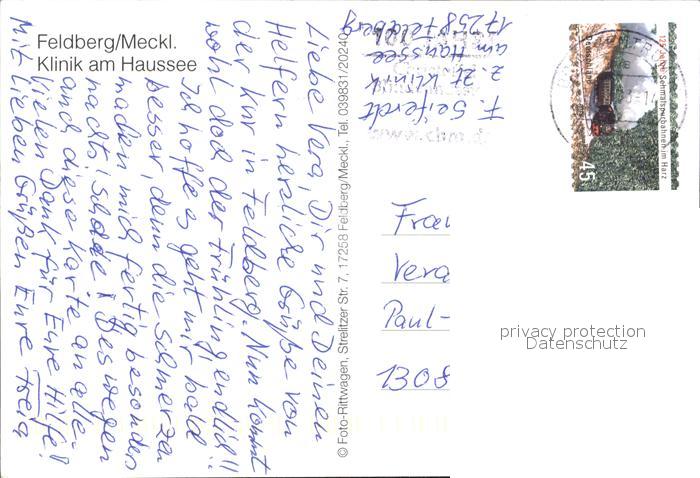 Feldberg/Meckl.
Klinik am Haussee
Liebe Vera, Dir und Deinen
Helfern herzliche Grüße von
der Kur in Feldberg. Nun kommt
wohl doch der Frühling endlich!!
Ich hoffe es geht mir bald
besser, denn die Schmerzen
machen mich fertig besonders
nachts, schade! Deswegen
auch diese Karte an alle.
Vielen Dank für Eure Hilfe!
Mit lieben Grüßen Eure
© Foto-Rittwagen, Strelitzer Str. 7, 17258 Feldberg/Meckl., Tel. 039831/20240
F. Seiferdt
z. Zt Klinik
am Haussee
17258 Feldberg
125 Jahre Schmalspurbahnen im Harz
45
Frau
Vera
Paul-
1308
privacy protection
Datenschutz